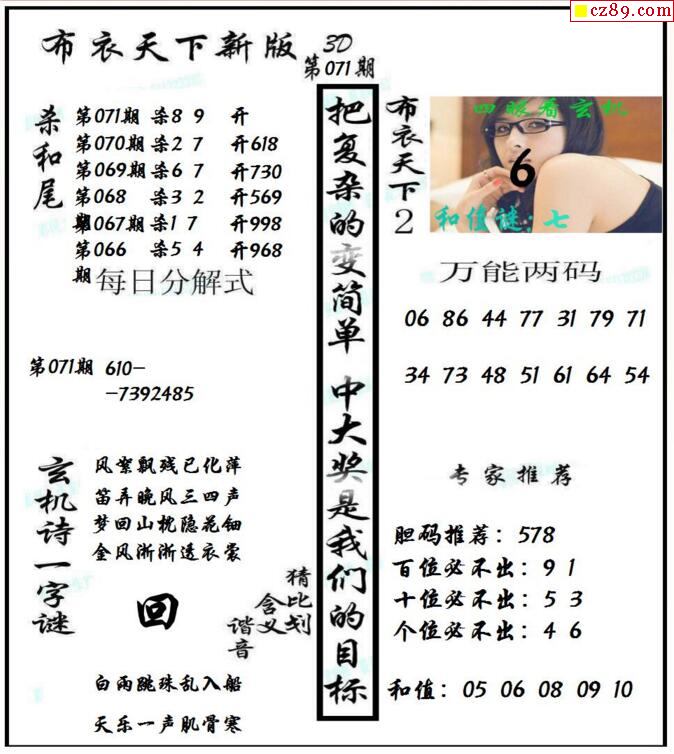 cz89.com
布衣天下新版 3D
第071期
杀和尾
第071期 杀8 9 开
第070期 杀2 7 开618
第069期 杀6 7 开730
第068期 杀3 2 开569
第067期 杀1 7 开998
第066期 杀5 4 开968
每日分解式
第071期 610-
-7392485
玄机诗一字谜
风絮飘残已化萍
笛弄晚风三四声
梦回山枕隐花钿
金风淅淅透衣裳
回
猜比划
含义
谐音
白雨跳珠乱入船
天乐一声肌骨寒
把复杂的变简单 中大奖是我们的目标
布衣天下2
四眼看玄机
6
和值谜:七
万能两码
06 86 44 77 31 79 71
34 73 48 51 61 64 54
专家推荐
胆码推荐:578
百位必不出:9 1
十位必不出:5 3
个位必不出:4 6
和值:05 06 08 09 10